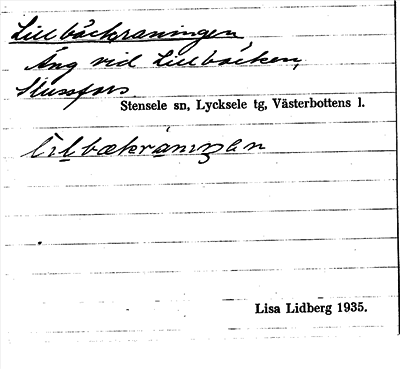 Lillbäckraningen
Äng vid Lillbäcken,
Slussfors
Stensele sn, Lycksele tg, Västerbottens l.
lılbækrànıŋan
Lisa Lidberg 1935.